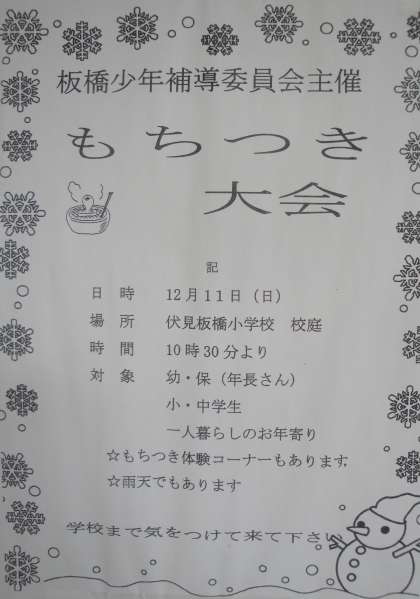 板橋少年補導委員会主催
もちつき
大会
記
日 時 12月11日（日）
場 所 伏見板橋小学校 校庭
時 間 10時30分より
対 象 幼・保（年長さん）
小・中学生
一人暮らしのお年寄り
☆もちつき体験コーナーもあります
☆雨天でもあります
学校まで気をつけて来て下さい